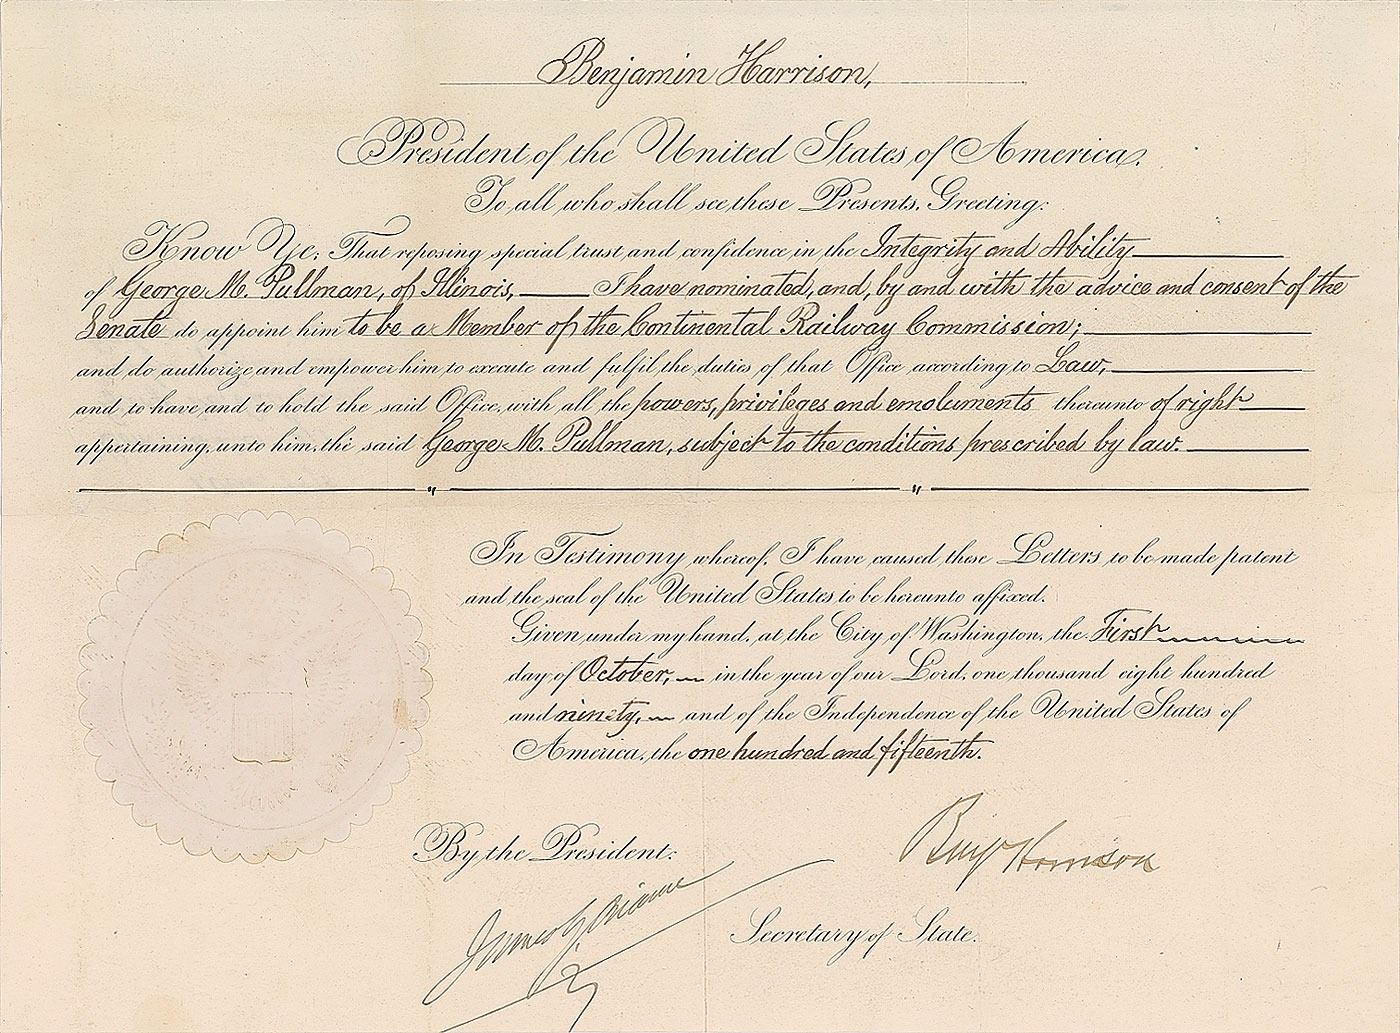 Benjamin Harrison,
President of the United States of America.
To all who shall see these Presents, Greeting:
Know Ye; That reposing special trust and confidence in the Integrity and Ability
of George M. Pullman, of Illinois, I have nominated, and, by and with the advice and consent of the
Senate do appoint him to be a Member of the Continental Railway Commission;
and do authorize and empower him to execute and fulfil the duties of that Office according to Law,
and to have and to hold the said Office, with all the powers, privileges and emoluments thereunto of right
appertaining, unto him, the said George M. Pullman, subject to the conditions prescribed by law.
In Testimony whereof, I have caused these Letters to be made patent
and the seal of the United States to be hereunto affixed.
Given under my hand, at the City of Washington, the First
day of October, in the year of our Lord, one thousand eight hundred
and ninety, and of the Independence of the United States of
America, the one hundred and fifteenth.
Benj Harrison
By the President:
James G. Blaine
Secretary of State.